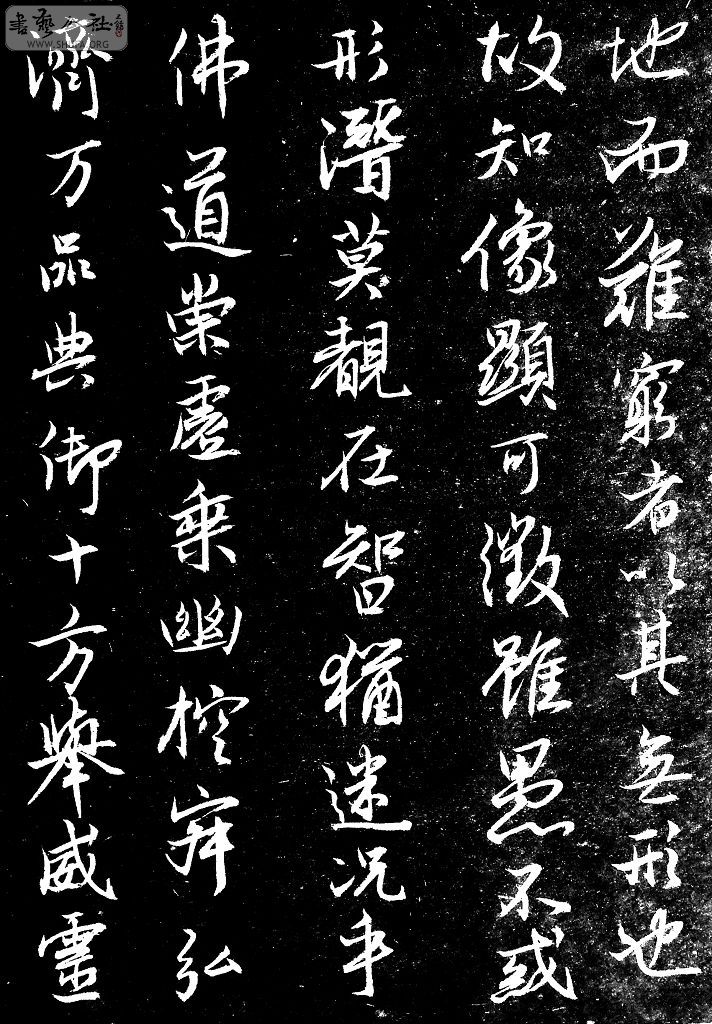 地而難窮者以其無形也
故知像顯可徵雖愚不惑
形潛莫覩在智猶迷况乎
佛道崇虛乗幽控寂弘
濟万品典御十方舉威靈
書藝公社
WWW.SHUFA.ORG